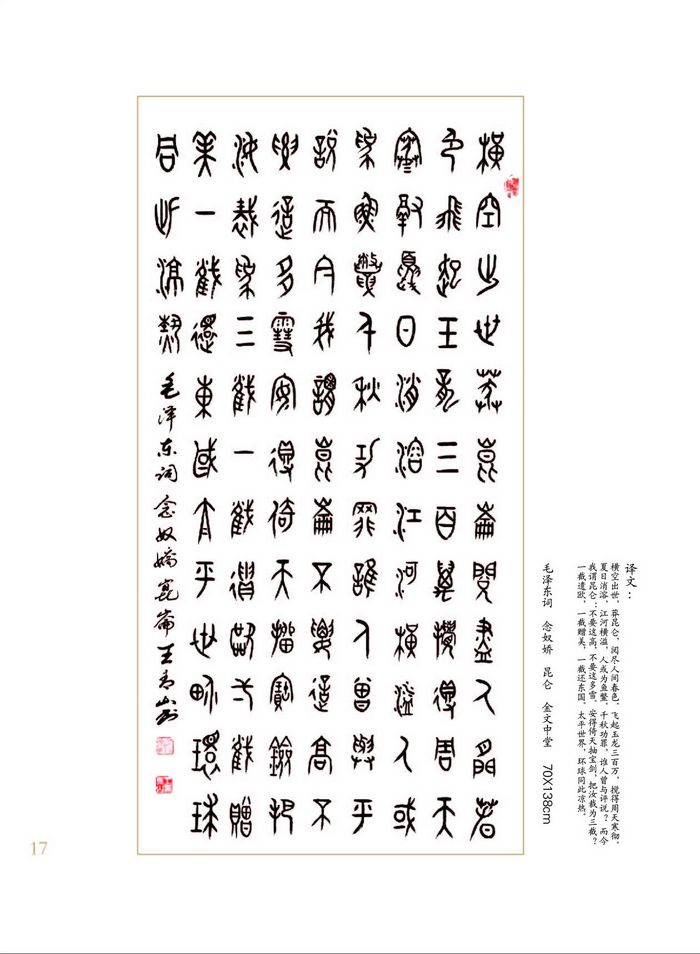 译文：
横空出世，莽昆仑，阅尽人间春色。飞起玉龙三百万，搅得用天寒彻。
夏日消溶，江河横溢，人或为鱼鳖。千秋功罪，谁人曾与评说？而今
我谓昆仑：不要这高，不要这多雪。安得倚天抽宝剑，把汝裁为三截？
一截遗欧，一截赠美，一截还东国。太平世界，环球同此凉热。
毛泽东词 念奴娇 昆仑 金文中堂 70X138cm
橫空出世莽崑崙閱盡人閒春
色飛起玉龍三百萬攪得周天
寒徹夏日消溶江河橫溢人或
為魚鱉千秋功罪誰人曾與平
說而今我謂崑崙不要這高不
要這多雪安得倚天抽寶劍把
汝裁為三截一截遺歐一截贈
美一截還東國太平世界環球
同此涼熱 毛泽东词念奴嬌崑崙王青
17